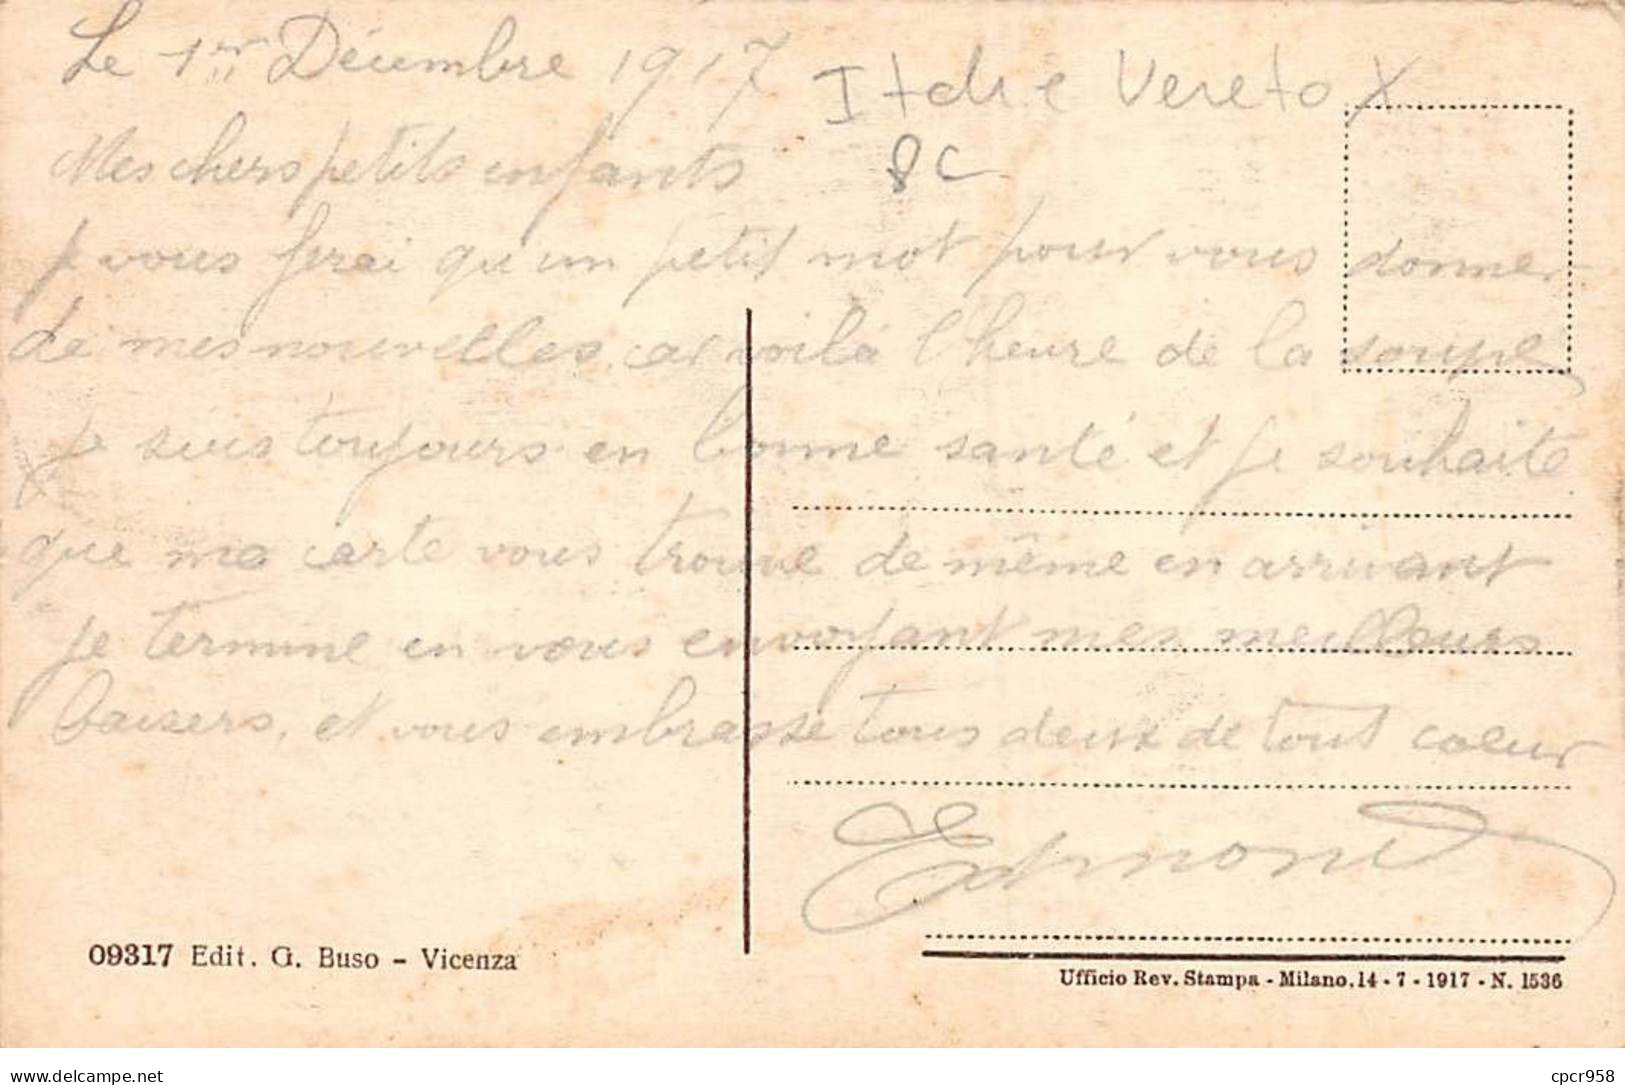 Le 1er Décembre 1917
Italie Veneto X
8C
Mes chers petits enfants
je vous ferai qu'un petit mot pour vous donner
de mes nouvelles car voilà l'heure de la soupe,
je suis toujours en bonne santé et je souhaite
que ma carte vous trouve de même en arrivant
je termine en vous envoyant mes meilleurs
baisers, et vous embrasse tous deux de tout coeur
Edmond
09317 Edit. G. Buso - Vicenza
Ufficio Rev. Stampa - Milano, 14 - 7 - 1917 - N. 1536
delcampe.net
cpcr958